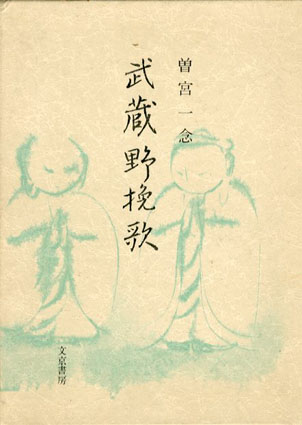 曽宮一念
武蔵野挽歌
文京書房